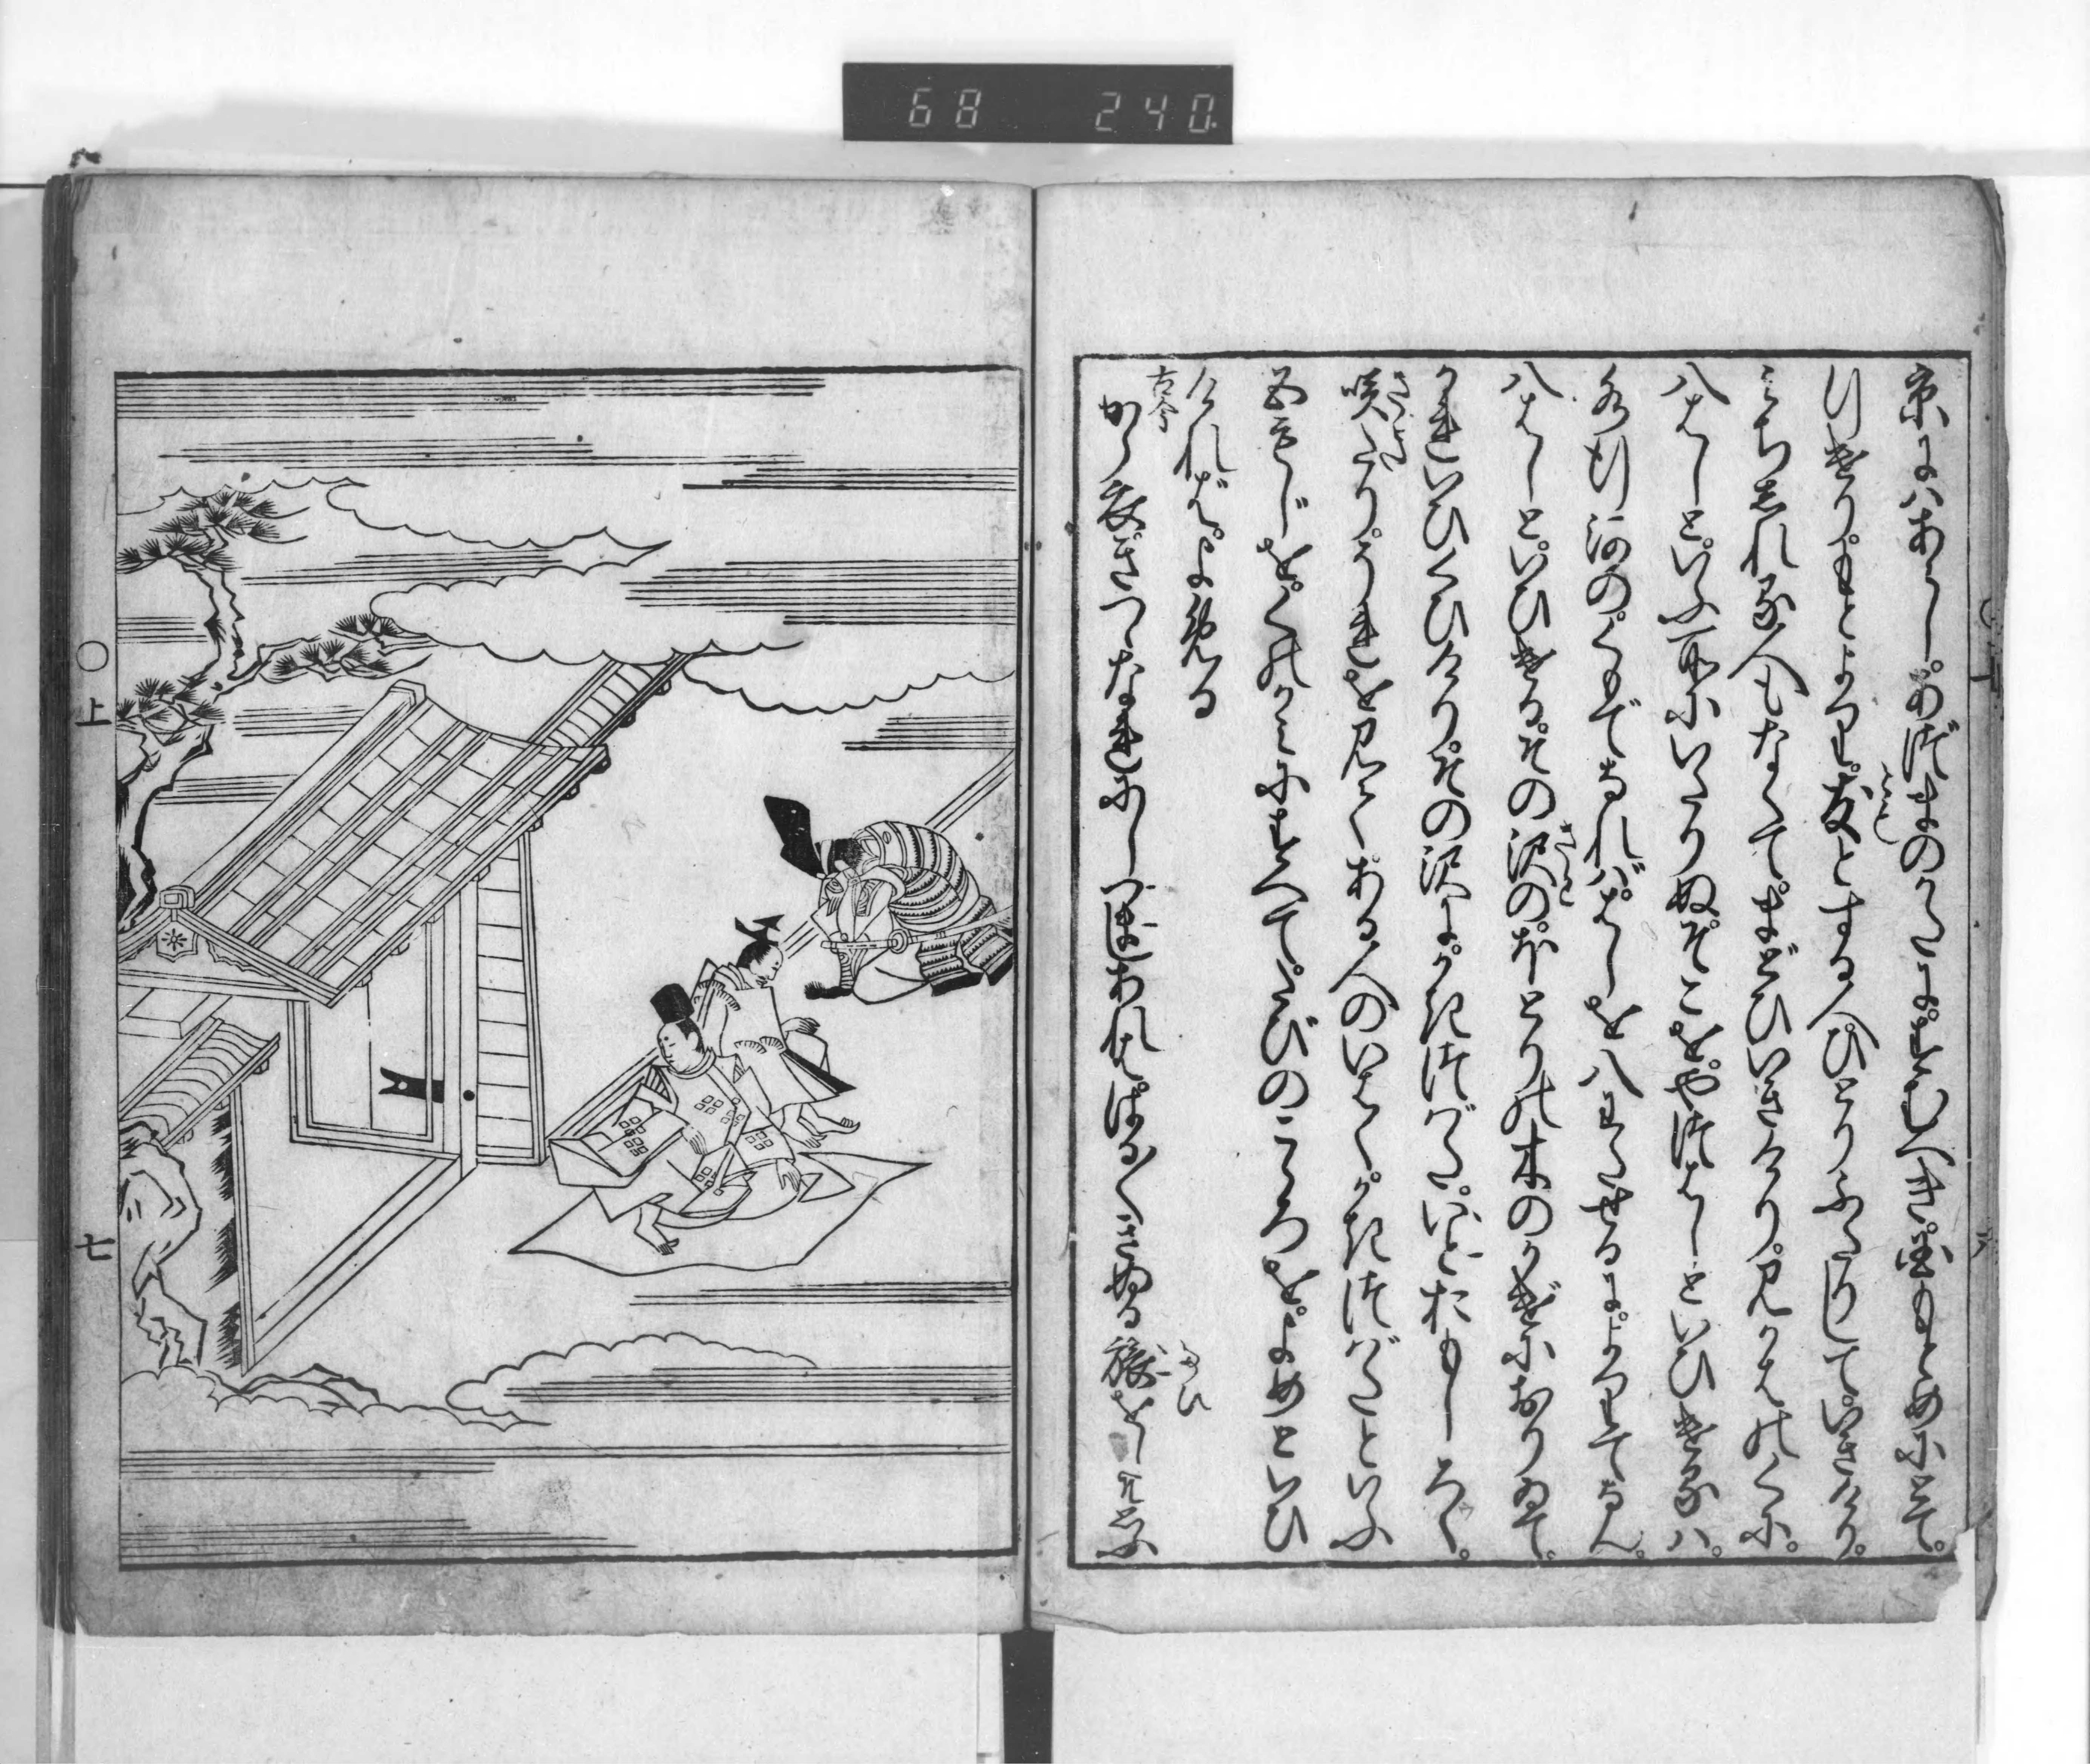 68 240
京にはあらじ。あづまのかたにすむべき。国もとめにとて。
行けり。もとより。友とする人。ひとりふたりして。いきけり。
みちしれる人もなくて。まどひいきけり。みかはのくに。
八はしといふ所にいたりぬ。そこを。やつはしといひけるは。
水行河の。くもでなれば。はしを八わたせるに。よりてなん。
八はしと。いひける。その沢の。ほとりの木のかげにおりゐて。
かれいひくひけり。その沢に。かきつばた。いとおもしろく。
咲たり。それを見て。ある人のいはく。かきつばたといふ
五もじを。くのかみにすへて。たびのこころを。よめといひ
ければ。よめる
古今
から衣。きつゝなれにし。つましあれば。はる〴〵きぬる旅をしぞ思ふ
〇上
七